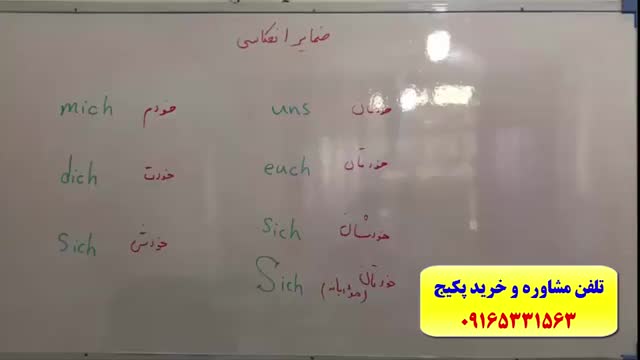 ضمایر انعکاسی
mich خودم
uns خودمان
dich خودت
euch خودتان
sich خودش
sich خودشان
Sich خودتان (مؤدبانه)
تلفن مشاوره و خرید پکیج
۰۹۱۶۵۳۳۱۵۶۳